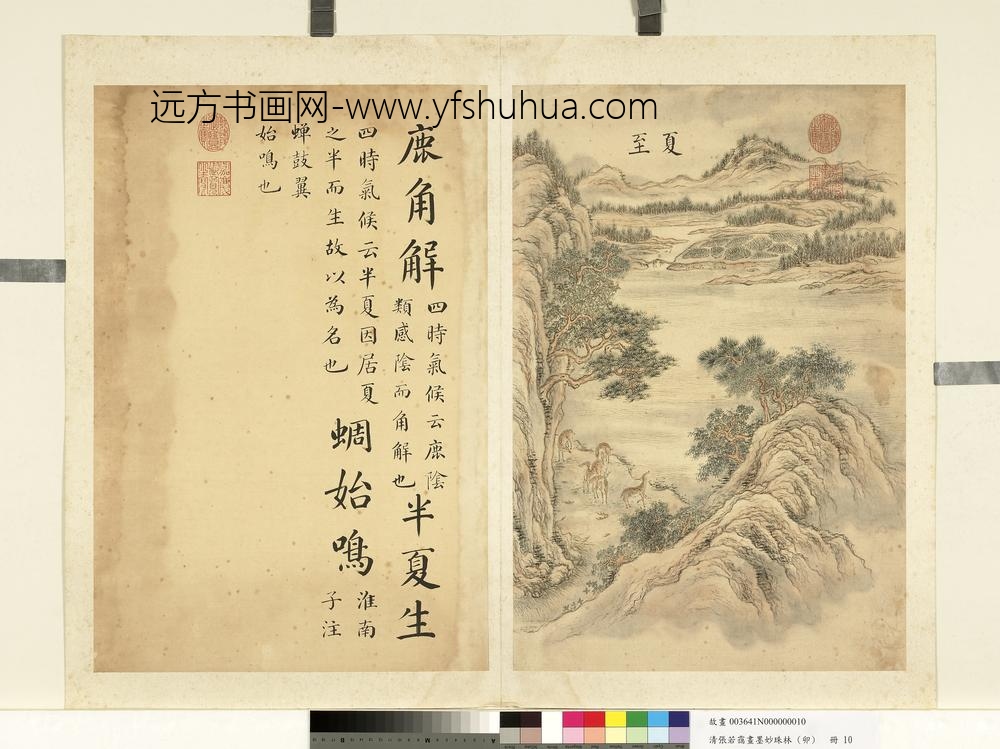 远方书画网-www.yfshuhua.com
夏至
鹿角解
四時氣候云鹿陰
類感陰而角解也
半夏生
四時氣候云半夏因居夏
之半而生故以為名也
蜩始鳴
淮南
子注
蟬鼓翼
始鳴也
故畫 003641N000000010
清張若靄畫墨妙珠林（卯） 冊 10